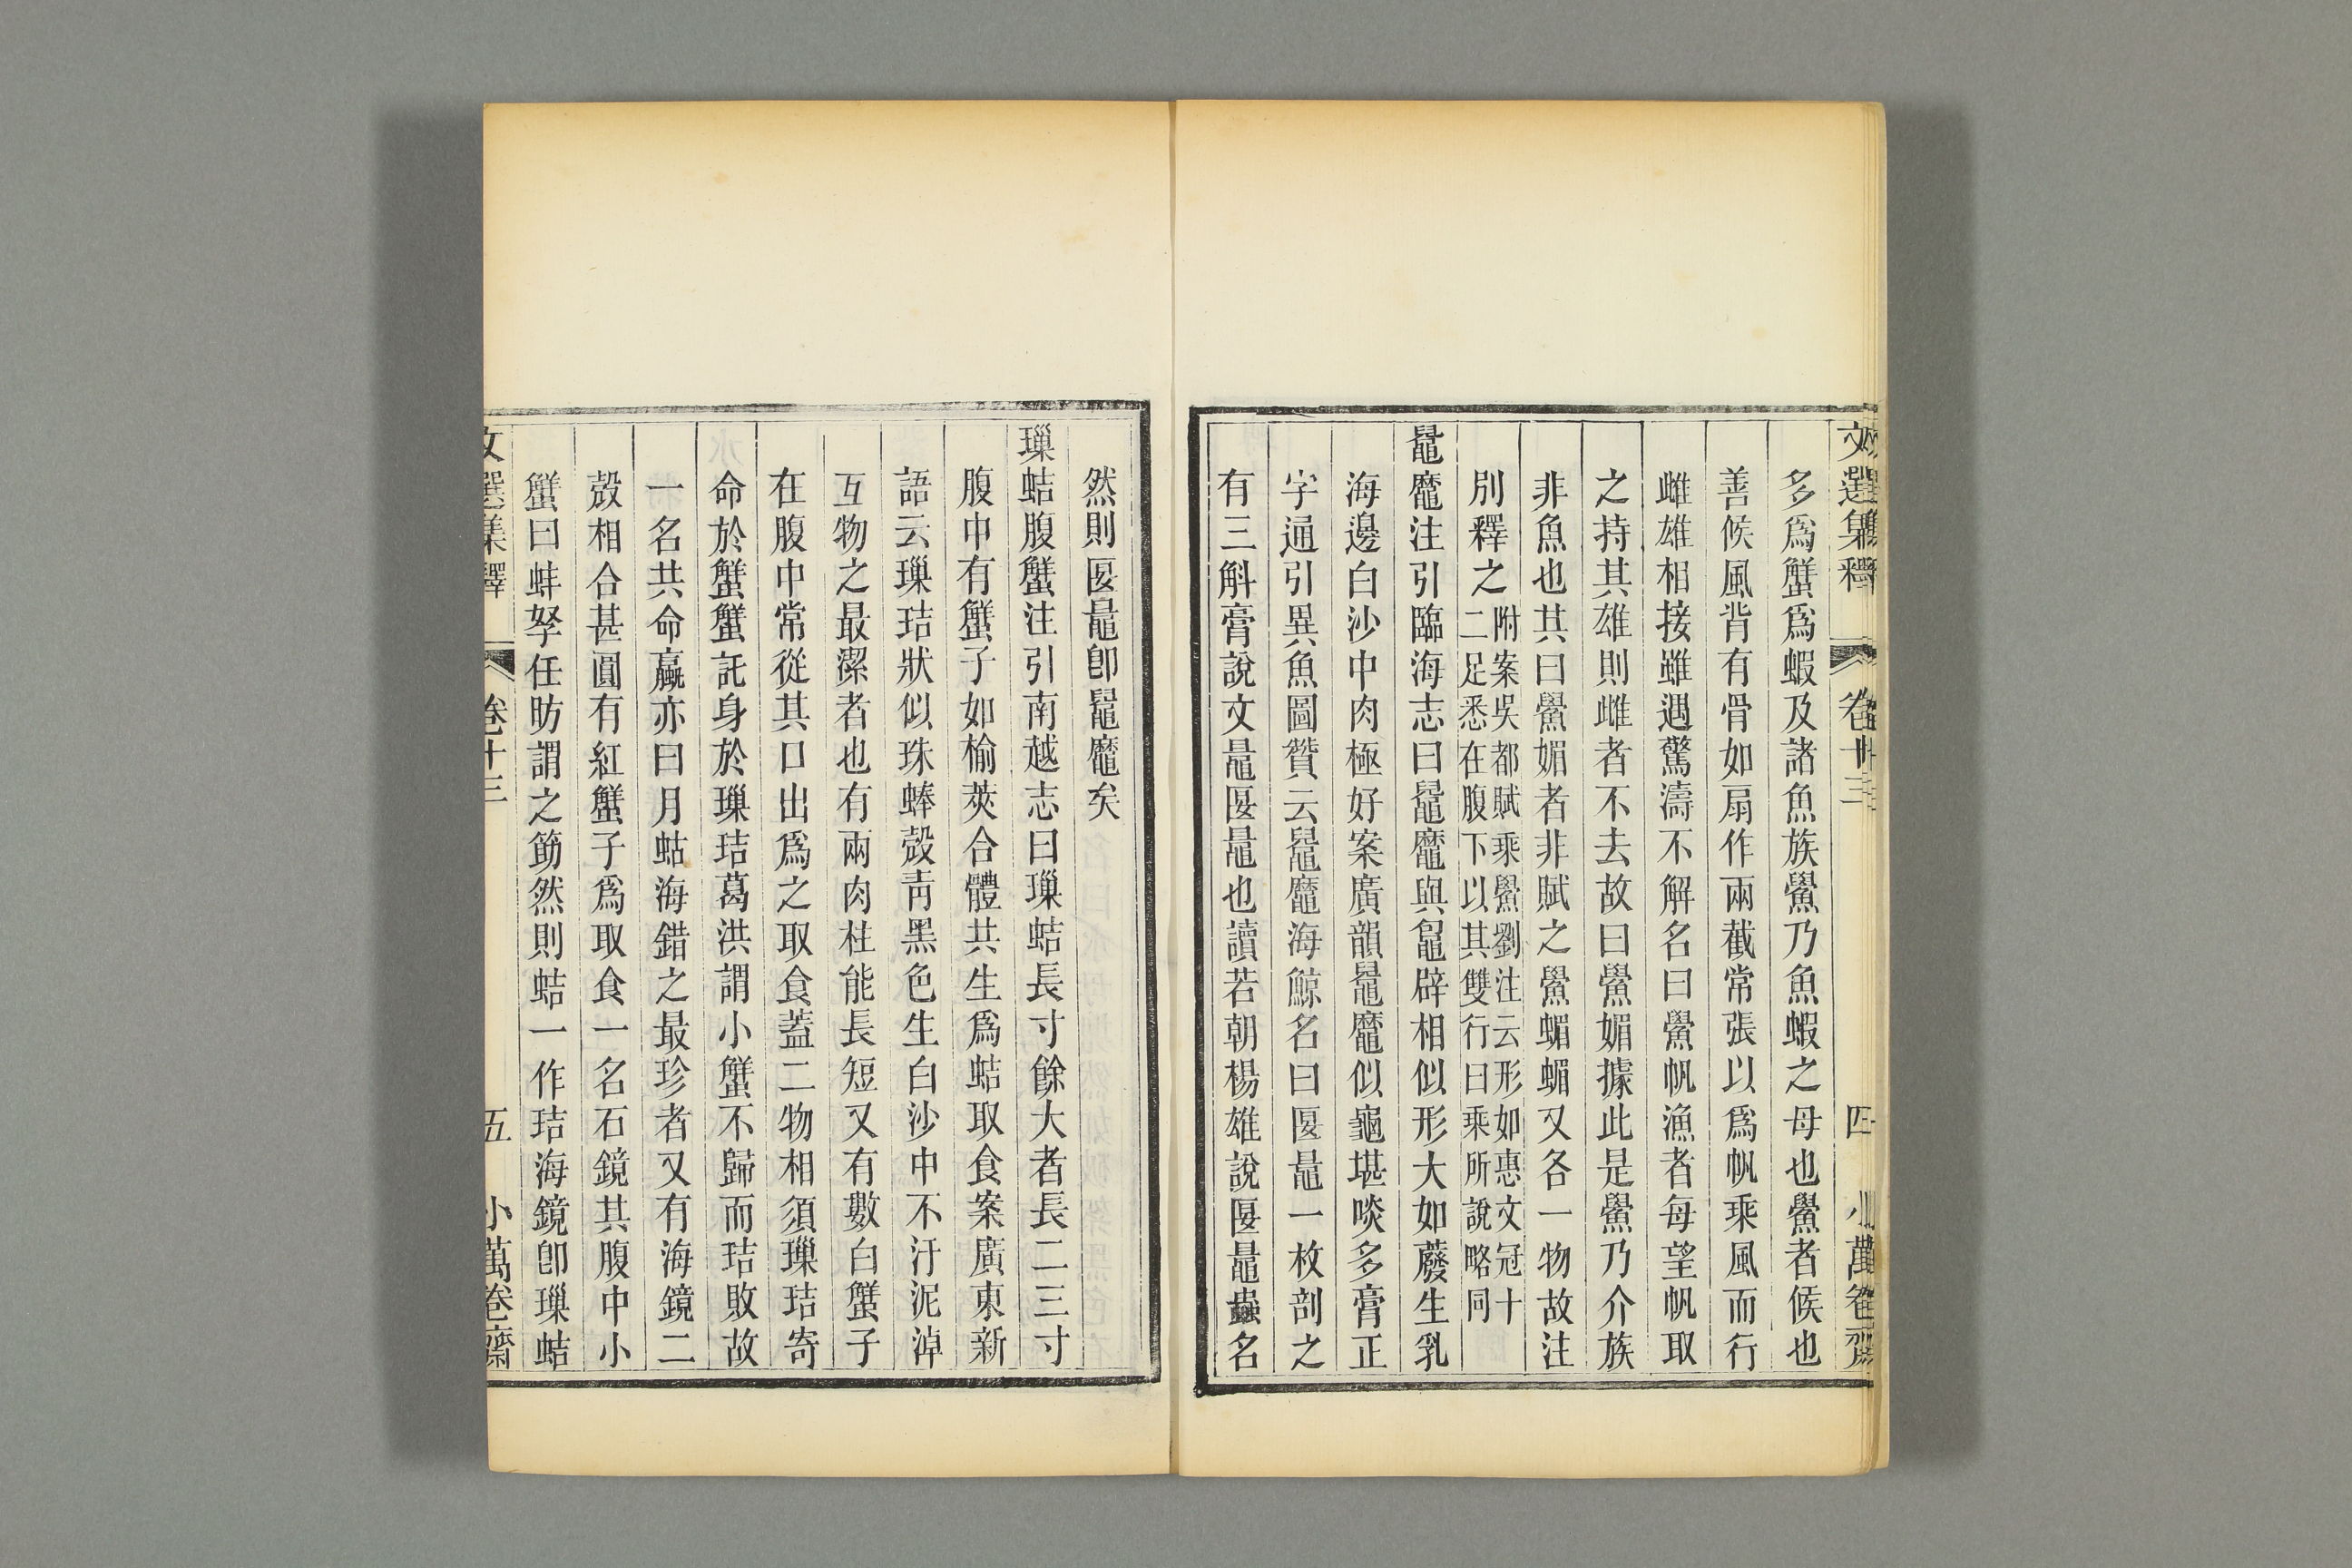 文選集釋 卷十三 四 小萬卷齋
多爲蟹爲蝦及諸魚族鱟乃魚蝦之母也鱟者候也
善候風背有骨如扇作兩截常張以爲帆乘風而行
雌雄相接雖遇驚濤不解名曰鱟帆漁者每望帆取
之持其雄則雌者不去故曰鱟媚據此是鱟乃介族
非魚也其曰鱟媚者非賦之鱟蝞蝞又各一物故注
別釋之附案吳都賦乘鱟劉注云形如惠文冠十二足悉在腹下以其雙行曰乘所說略同
鼊注引臨海志曰鼊與鼊辟相似形大如䕠生乳
海邊白沙中肉極好案廣韻鼊似龜堪啖多膏正
字通引異魚圖贊云鼊海鯨名曰匽鼂一枚剖之
有三斛膏說文鼂匽鼂也讀若朝楊雄說匽鼂蟲名
然則匽鼂卽鼊矣
璅蛣腹蟹注引南越志曰璅蛣長寸餘大者長二三寸
腹中有蟹子如榆莢合體共生爲蛣取食案廣東新
語云璅琂狀似珠蜯殼青黑色生白沙中不汙泥淖
互物之最潔者也有兩肉柱能長短又有數白蟹子
在腹中常從其口出爲之取食蓋二物相須璅琂寄
命於蟹蟹託身於璅琂葛洪謂小蟹不歸而琂敗故
一名共命蠃亦曰月蛄海錯之最珍者又有海鏡二
殼相合甚圓有紅蟹子爲取食一名石鏡其腹中小
蟹曰蚌孥任昉謂之筯然則蛣一作琂海鏡卽璅蛣
文選集釋 卷十三 五 小萬卷齋